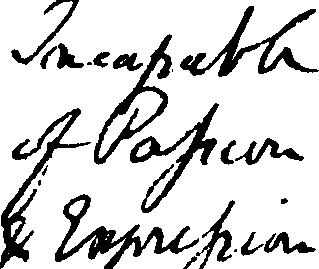 Incapable
of Passion
& Expression